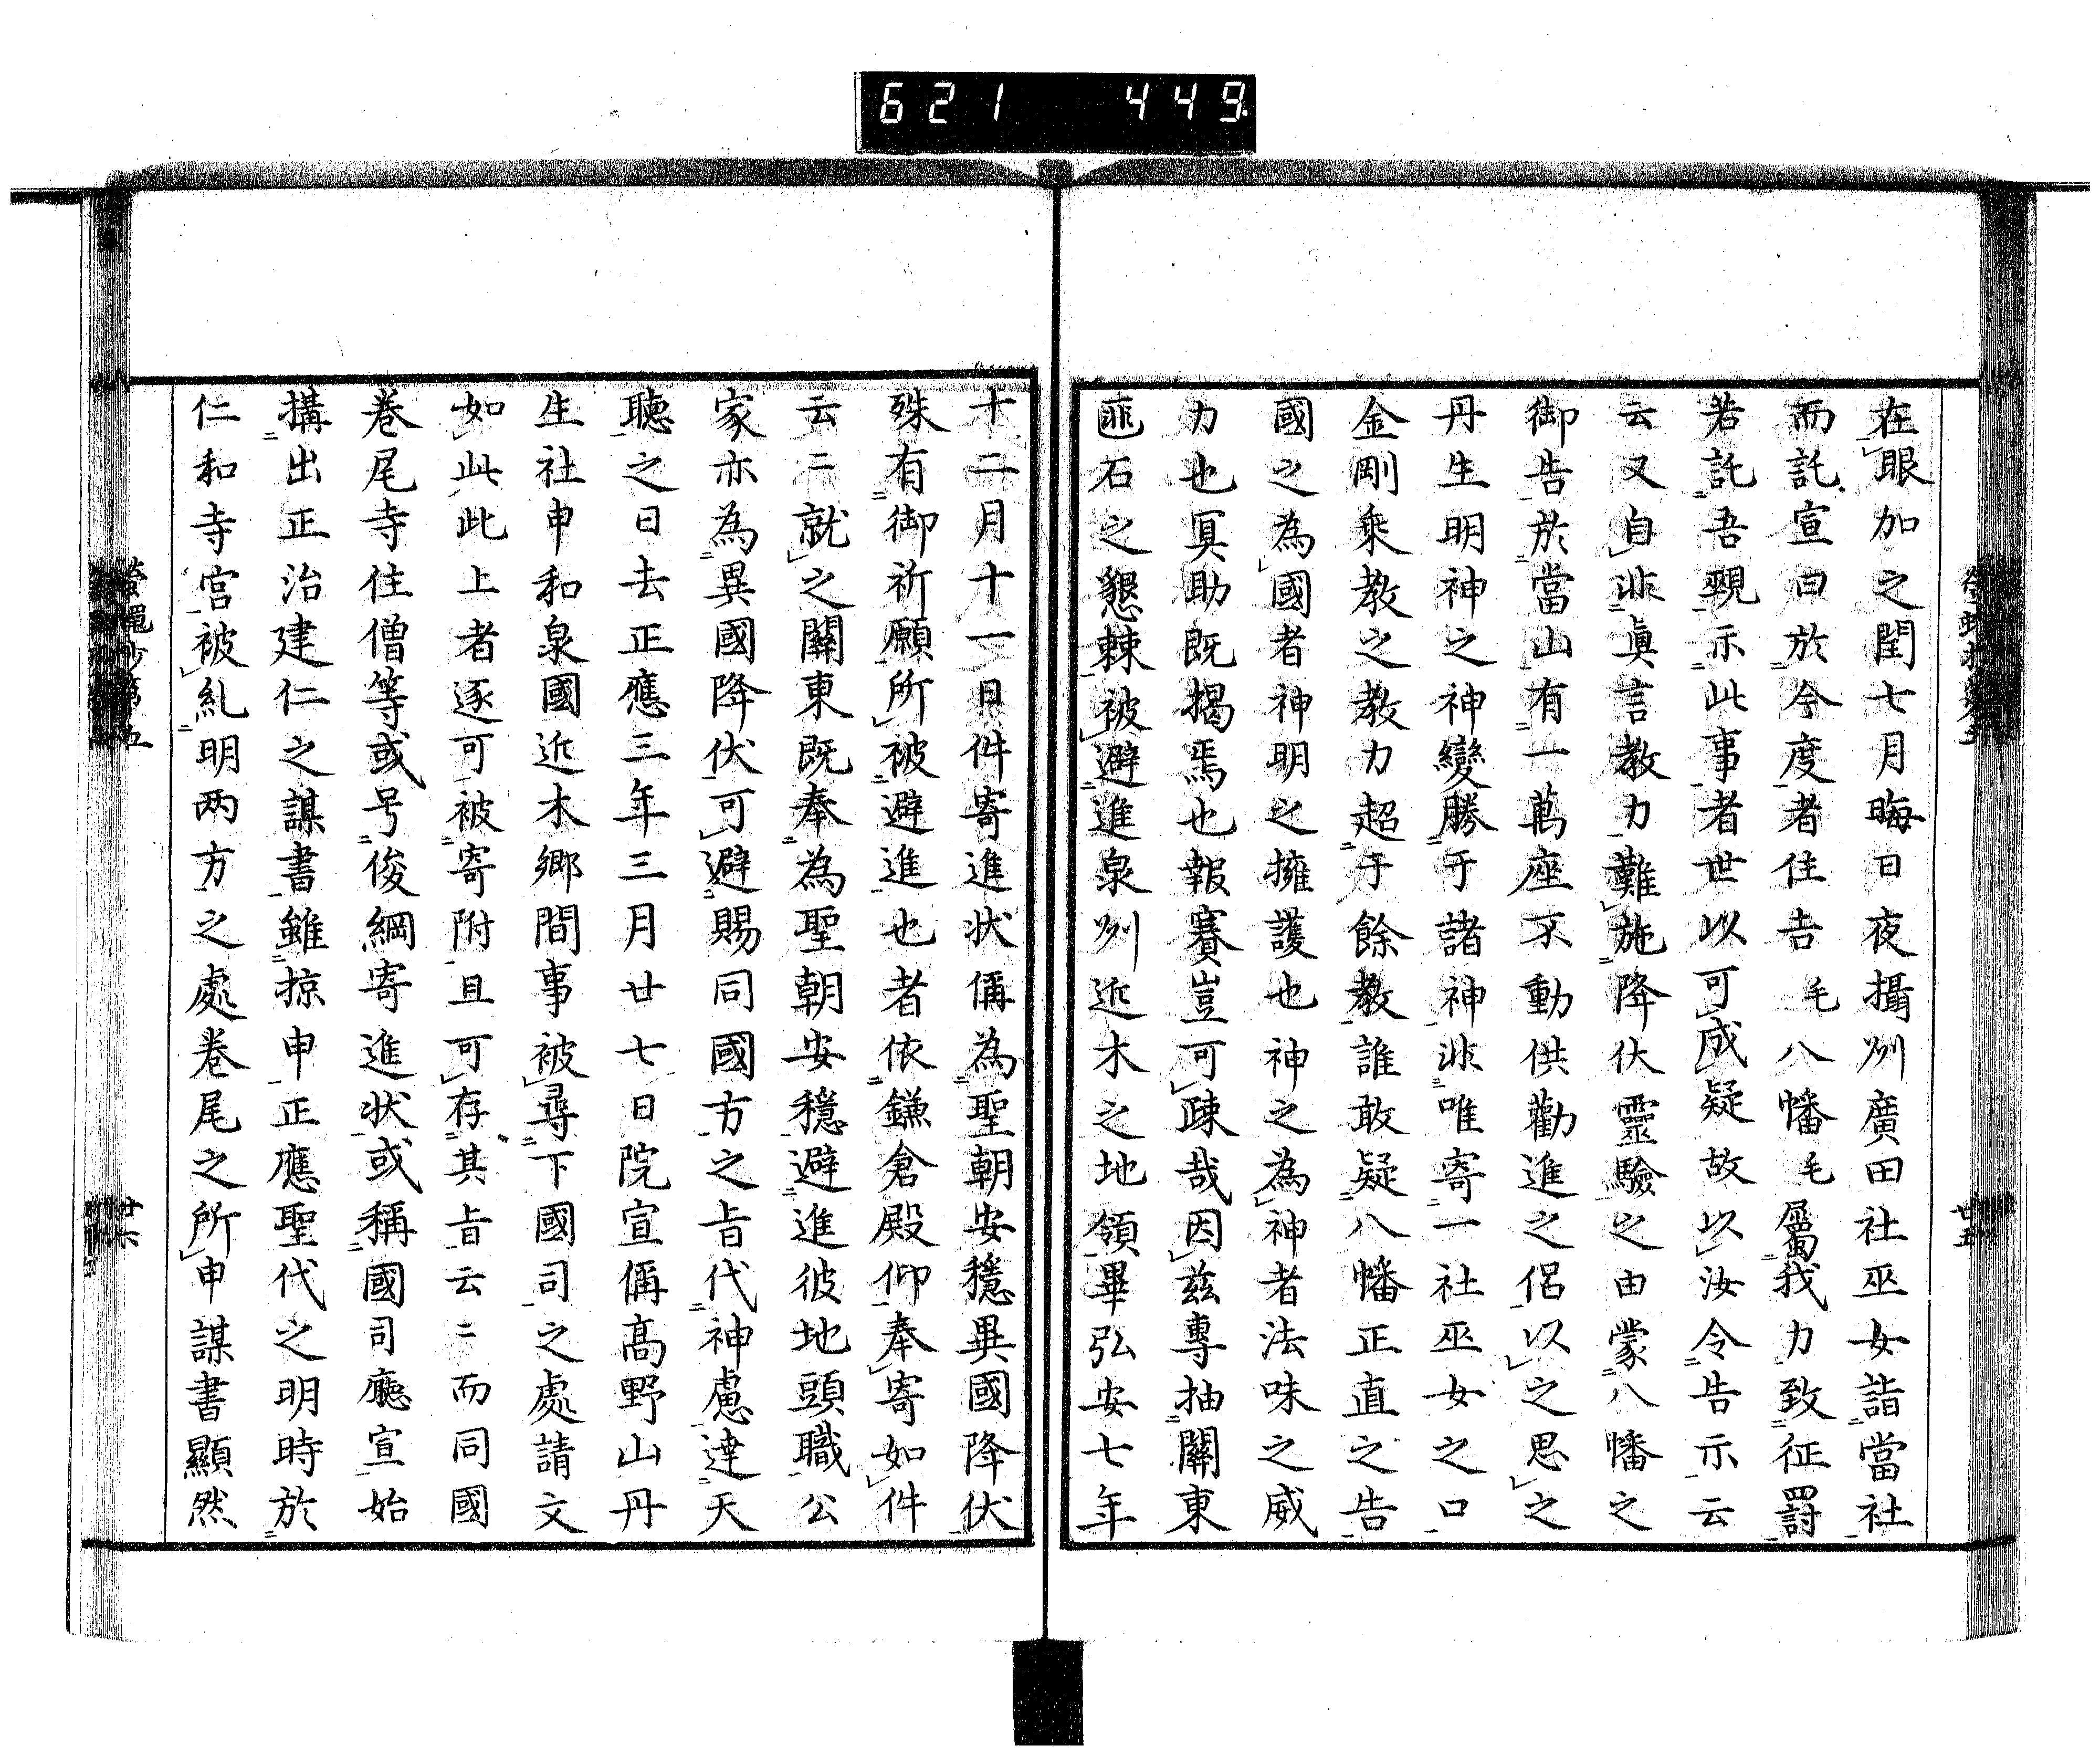 621 449
在眼加之閏七月晦日夜攝州廣田社巫女詣當社
而託宣曰於今度者住吉毛八幡毛屬我力致征罸
若託吾覡示此事者世以可成疑故以汝令告示云
云又自非眞言教力難施降伏靈驗之由蒙八幡之
御告於當山有一萬座不動供勸進之侶以之思之
丹生明神之神變勝于諸神非唯寄一社巫女之口
金剛乘教之教力超于餘教誰敢疑八幡正直之告
國之為國者神明之擁護也神之為神者法味之威
力也冥助既揭焉也報賽豈可疎哉因兹專抽關東
匪石之懇棘被避進泉州近木之地領畢弘安七年
廿五
十二月十一日件寄進状偁為聖朝安穩異國降伏
殊有御祈願所被避進也者依鎌倉殿仰奉寄如件
云〻就之關東既奉為聖朝安穩避進彼地頭職公
家亦為異國降伏可避賜同國方之旨代神慮達天
聴之日去正應三年三月廿七日院宣偁高野山丹
生社申和泉國近木郷間事被尋下國司之處請文
如此此上者逐可被寄附且可存其旨云〻而同國
巻尾寺住僧等或号俊綱寄進状或稱國司廳宣始
搆出正治建仁之謀書雖掠申正應聖代之明時於
仁和寺宮被糺明两方之處巻尾之所申謀書顯然
第五
廿六